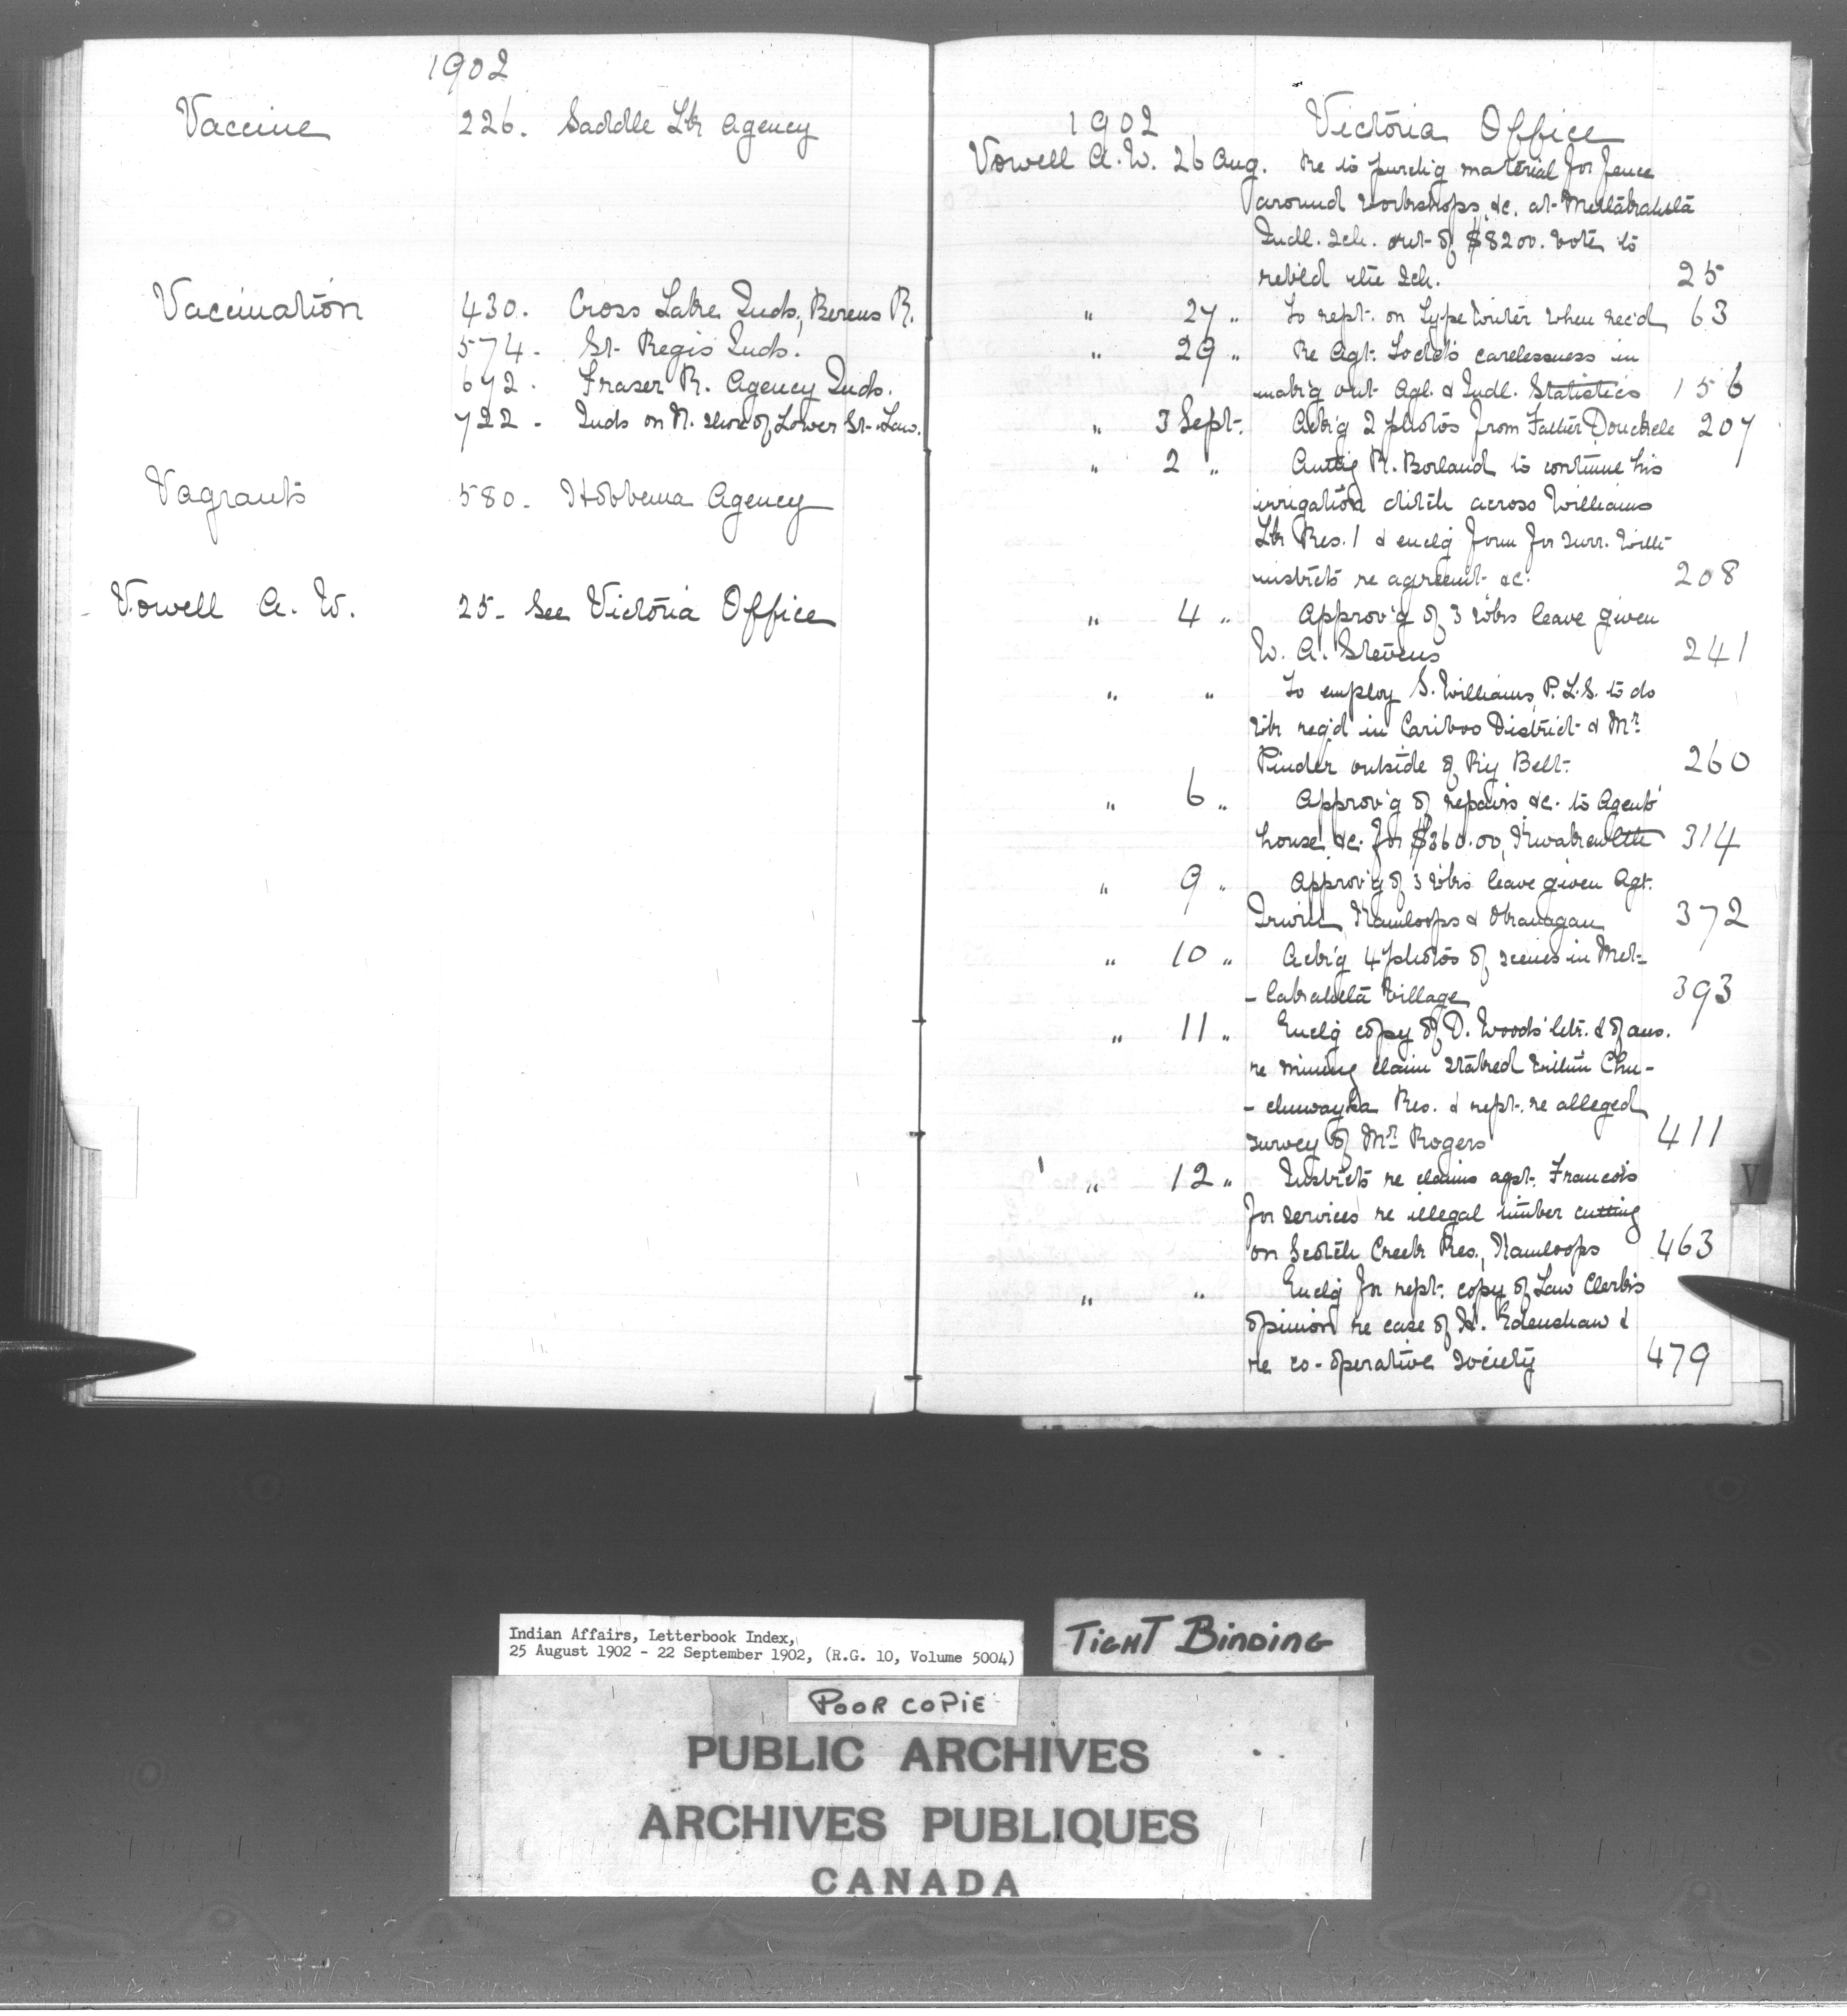 1902
Vaccine 226. Saddle Lk Agency
Vaccination 430. Cross Lake Inds, Berens R.
574. St. Regis Inds.
672. Fraser R. Agency Inds.
722. Inds on N. shore of Lower St. Law.
Vagrants 580. Hobbema Agency
Vowell A. W. 25. See Victoria Office
1902 Victoria Office
Vowell A. W. 26 Aug. Re to purch'g material for fence
around workshops, &c. at Metlakahtla
Indl. Sch. out of $8200. vote to
rebld the Sch. 25
" 27 " To rept. on Typewriter when rec'd 63
" 29 " Re Agt. Todd's carelessness in
mak'g out Agl. & Indl. Statistics 156
" 3 Sept. Ack'g 2 photos from Father Donckele 207
" 2 " Authg R. Borland to continue his
irrigation ditch across Williams
Lk Res. 1 & enclg form for surr. with
instrcts re agreemt &c. 208
" 4 " Approv'g of 3 wks leave given
W. A. Stevens 241
" " To employ S. Williams, P.L.S. to do
wk req'd in Cariboo District & Mr.
Pinder outside of Ry Belt. 260
" 6 " Approv'g of repairs &c. to Agents'
house &c. for $360.00, Kwawkewlth 314
" 9 " Approv'g of 3 wks leave given Agt.
Irwin, Kamloops & Okanagan 372
" 10 " Ack'g 4 photos of scenes in Met-
-lakahtla Village 393
" 11 " Enclg copy of D. Woods' letr. & of ans.
re mining claim staked within Chu-
-chuwayha Res. & rept. re alleged
survey of Mr. Rogers 411
" 12 " Instrcts re claims agst. Francois
for services re illegal timber cutting
on Scotch Creek Res., Kamloops 463
" " Enclg for rept. copy of Law Clerk's
opinion re case of H. Edenshaw &
re co-operative society 479
V
Indian Affairs, Letterbook Index,
25 August 1902 - 22 September 1902, (R.G. 10, Volume 5004)
TIGHT BINDING
POOR COPIE
PUBLIC ARCHIVES
ARCHIVES PUBLIQUES
CANADA